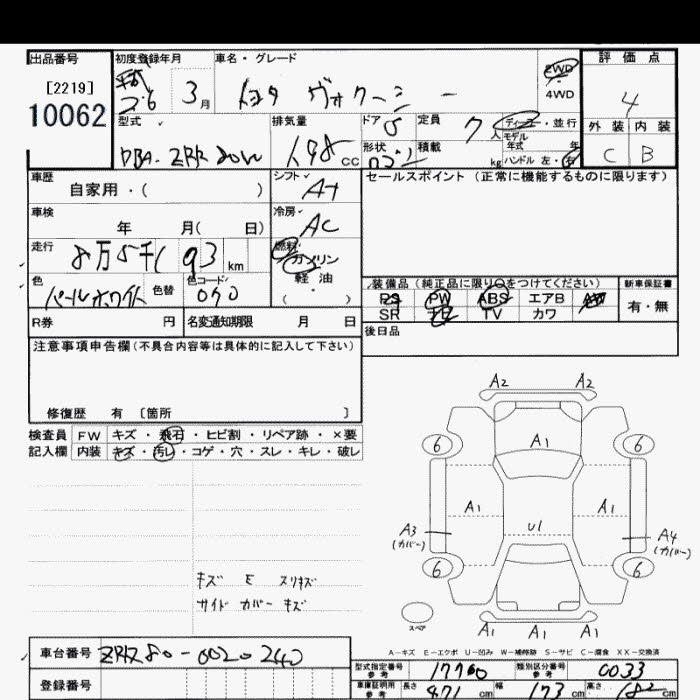 出品番号 初度登録年月 車名・グレード 評価点
[2219] 平成 2WD
10062 26 3月 トヨタ ヴォクシー 4WD 4
型式 排気量 ドア 5 定員 7人 ディーラー・並行 外装 内装
DBA-ZRR80W 198 CC 形状 積載 kg モデル年式 年 C B
ハンドル 左・右
車歴 シフト AT セールスポイント (正常に機能するものに限ります)
自家用・( )
車検 冷房 AC
年 月( 日)
走行 8万5千193km 燃料 ガソリン
軽油
( )
色 パールホワイト 色替 色コード 070
装備品 (純正品に限り○をつけてください) 新車保証書
PS PW ABS エアB AW 有・無
SR ナビ TV カワ
R券 円 名変通知期限 月 日 後日品
注意事項申告欄 (不具合内容等は具体的に記入して下さい)
修復歴 有 [箇所 ]
検査員 FW キズ・飛石・ヒビ割・リペア跡・×要
記入欄 内装 キズ・汚レ・コゲ・穴・スレ・キレ・破レ
A2 A2
6 A1 6
A1 A1
A3 (カバー) U1 A4 (カバー)
6 6
キズ E スリキズ
サイド カバー キズ
スペア A1 A1 A1
A-キズ E-エクボ U-凹み W-補修跡 S-サビ C-腐食 XX-交換済
車台番号 ZRR80-0020240
登録番号
型式指定番号 参考 17760 類別区分番号 参考 0033
車庫証明用 参考 長さ 471cm 幅 173cm 高さ 182cm